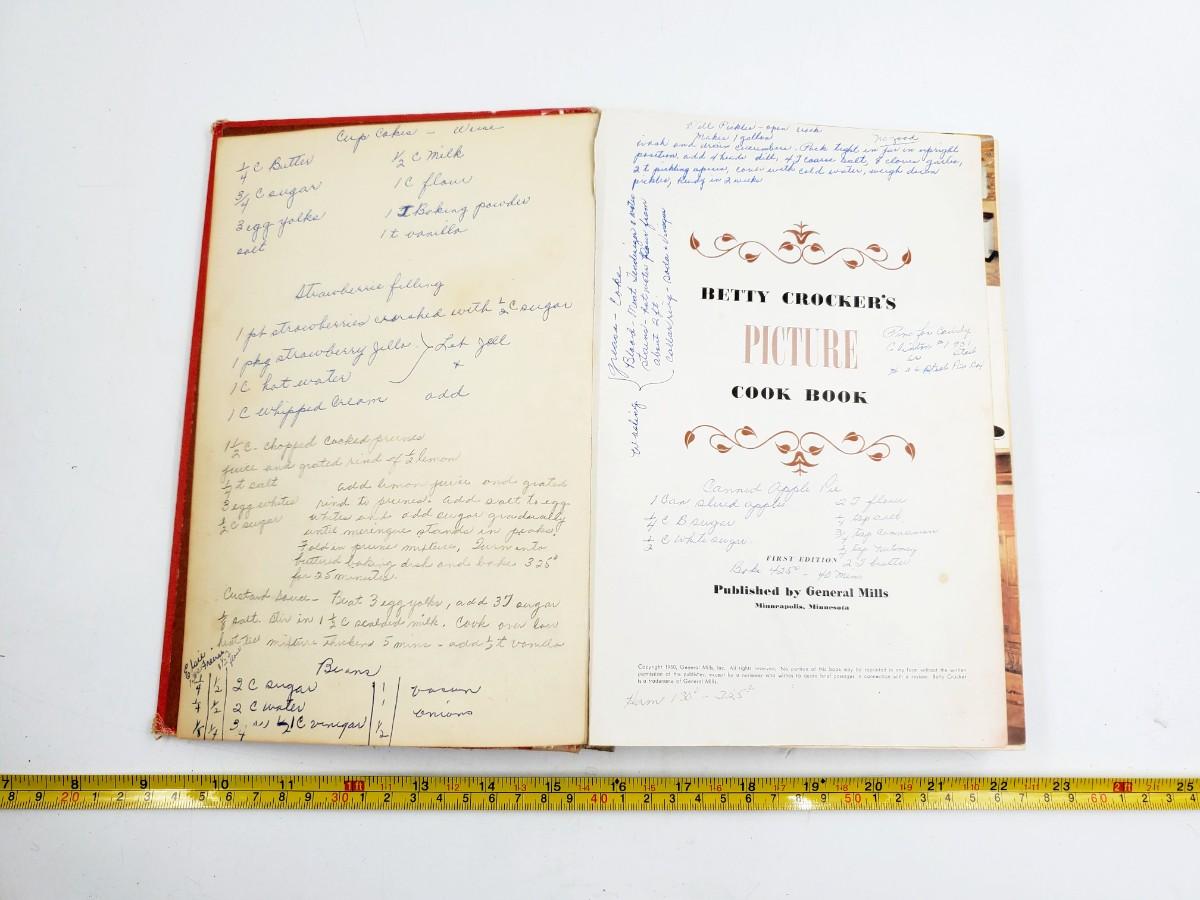 Cup Cakes -
1/4 C Butter
3/4 C sugar
3 egg yolks
salt
1/2 C Milk
1 C flour
1 T Baking powder
1 t vanilla
Strawberrie filling
1 pt strawberries crushed with 1/2 C sugar
1 pkg strawberry Jello } Let Jell
1 C hot water +
1 C whipped Cream add
1 1/2 C. chopped cooked prunes
juice and grated rind of 1/2 lemon
1/4 t salt
3 egg whites
1/2 C sugar
add lemon juice and grated
rind to prunes. Add salt to egg
whites and add sugar gradually
until meringue stands in peaks.
Fold in prune mixture, Turn into
buttered baking dish and bake 325°
for 25 minutes.
Custard Sauce - Beat 3 egg yolks, add 3 T sugar
salt. Stir in 1 1/2 C scalded milk. Cook over low
heat mixture thickens 5 mins - add 1/2 t vanilla
Elsie
Beans
1/4 1/2 2 C sugar 1 bacon
1/4 1/2 2 C water 1 onions
1/8 1/4 3/4 1/2 C vinegar 1/2
Dill Pickles - open
no good
Makes 1 gallon
wash and drain cucumbers. Pack tight in jar in upright
position, add 4 heads dill, 4 T coarse salt, 8 cloves garlic,
2 t pickling spices, cover with cold water, weigh down
pickles, Ready in 2 weeks
Grease - Coke
Blood - Meat Tenderizer & water
Stains - hot water pour from
about 2 ft
Collar ring - Soda + Vinegar
BETTY CROCKER'S
PICTURE
COOK BOOK
Pan for Candy
Canned Apple Pie
1 Can sliced apples
1/4 C B sugar
1/2 C White sugar
2 T flour
1/4 tsp salt
3/4 tsp Cinnamon
1/4 tsp Nutmeg
2 T butter
Bake 425° - 40 mins
FIRST EDITION
Published by General Mills
Minneapolis, Minnesota
Copyright 1950, General Mills, Inc. All rights reserved. No portion of this book may be reprinted in any form without the written
permission of the publisher, except by a reviewer who wishes to quote brief passages in connection with a review. Betty Crocker
is a trademark of General Mills.
Ham 130° - 325°
7 8 9 10 11 1 ft 13 14 15 16 17 18 19 20 21 22 23 2 ft 25